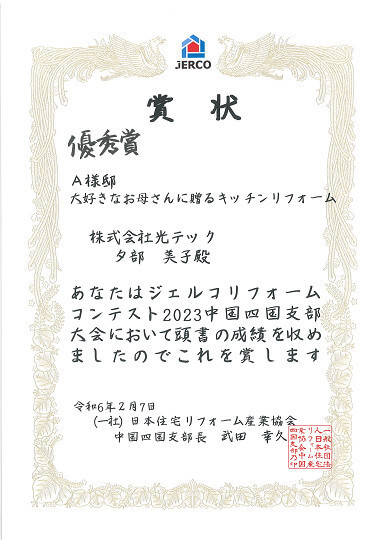 JERCO
賞状
優秀賞
A様邸
大好きなお母さんに贈るキッチンリフォーム
株式会社光テック
夕部 美子殿
あなたはジェルコリフォーム
コンテスト2023中国四国支部
大会において頭書の成績を収め
ましたのでこれを賞します
令和6年2月7日
(一社)日本住宅リフォーム産業協会
中国四国支部長 武田 幸久
一般社団法
人日本住宅
リフォーム産
業協会中国
四国支部乃印